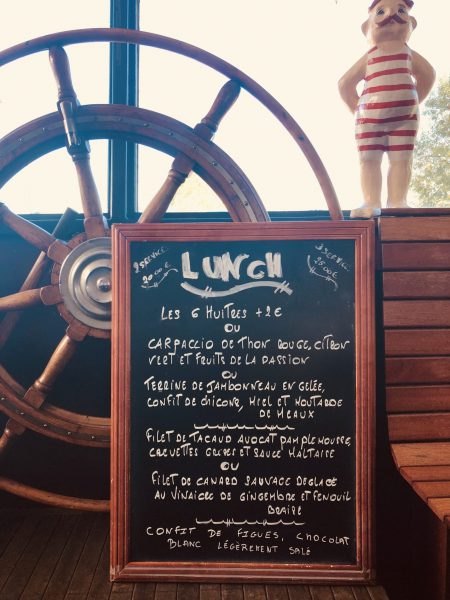 2 SERVICE
20.00€
LUNCH
3 SERVICE
25.00€
LES 6 HUITRES +2€
OU
CARPACCIO DE THON ROUGE, CITRON
VERT ET FRUITS DE LA PASSION
OU
TERRINE DE JAMBONNEAU EN GELÉE,
CONFIT DE CHICONS, MIEL ET MOUTARDE
DE MEAUX
FILET DE TACAUD AVOCAT PAMPLEMOUSSE,
CREVETTES GRISES ET SAUCE MALTAISE
OU
FILET DE CANARD SAUVAGE DEGLACÉ
AU VINAIGRE DE GINGEMBRE ET FENOUIL
BRAISÉ
CONFIT DE FIGUES, CHOCOLAT
BLANC LÉGEREMENT SALÉ